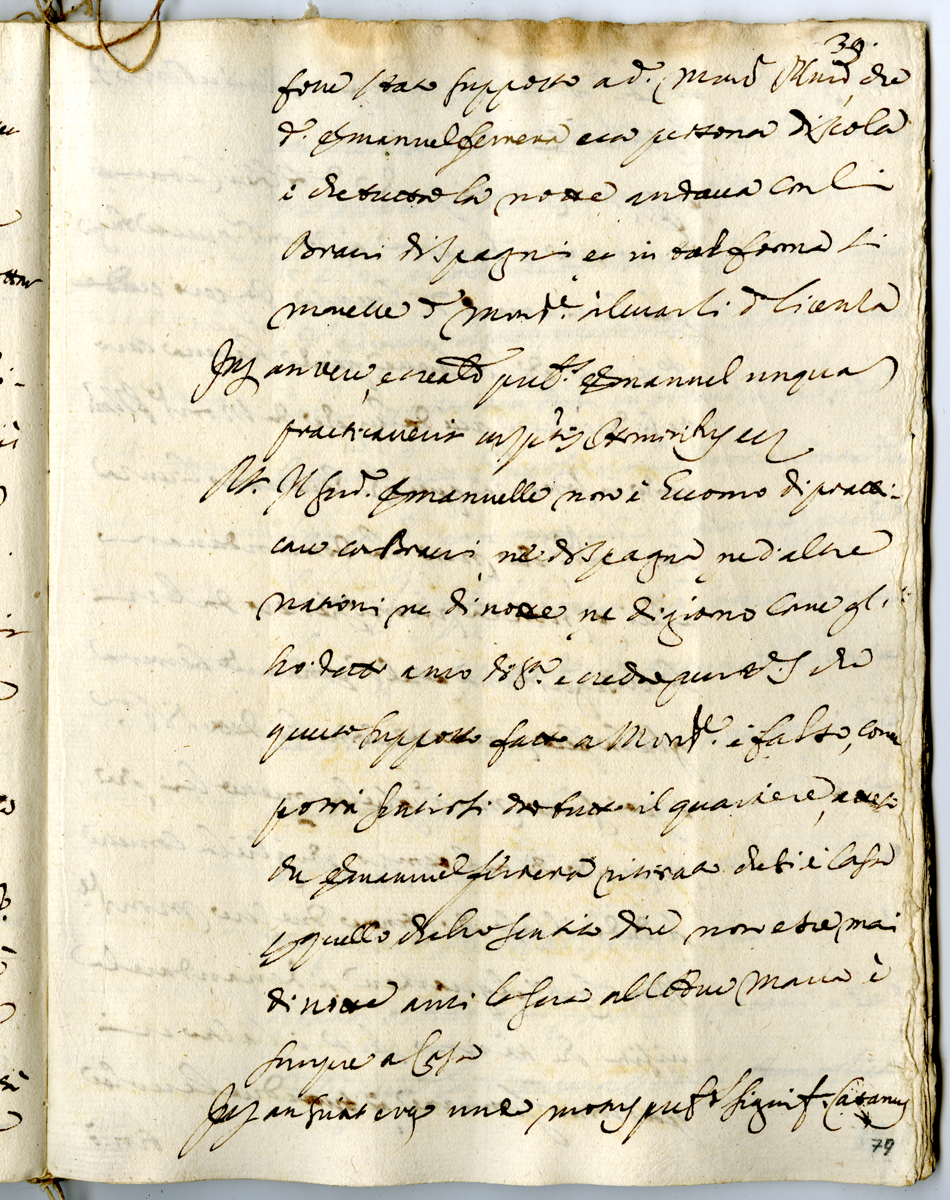 39.
fosse stato supposto a d.º Mons.r Ill.mo che
d.º Emanuel Ferrera era persona discola
è che tutta la notte andava con li
Bravi di Spagna et in tal forma si
mosse d.º Mons.re à levarli d.ª licenza
Int. an sciat, et credat pred.s Emanuel unqua
practicaverit cum hominibus
R.t Il sud.º Emanuelle non è huomo di prati-
care con Bravi ne di Spagna ne d'altre
nationi ne di notte ne di giorno come gl'
hò detto anzo di s.ª e credo per che
questo supposto fatto a Mons.re è falso, come
potrà sentirsi da tutto il quartiere,
che Emanuel Ferrera ritirato in Casa
e quello che ho sentito dire non esce mai
di notte anzi la sera all'Ave Maria è
sempre a Casa
Int. an sciat unde mons pred.s
79